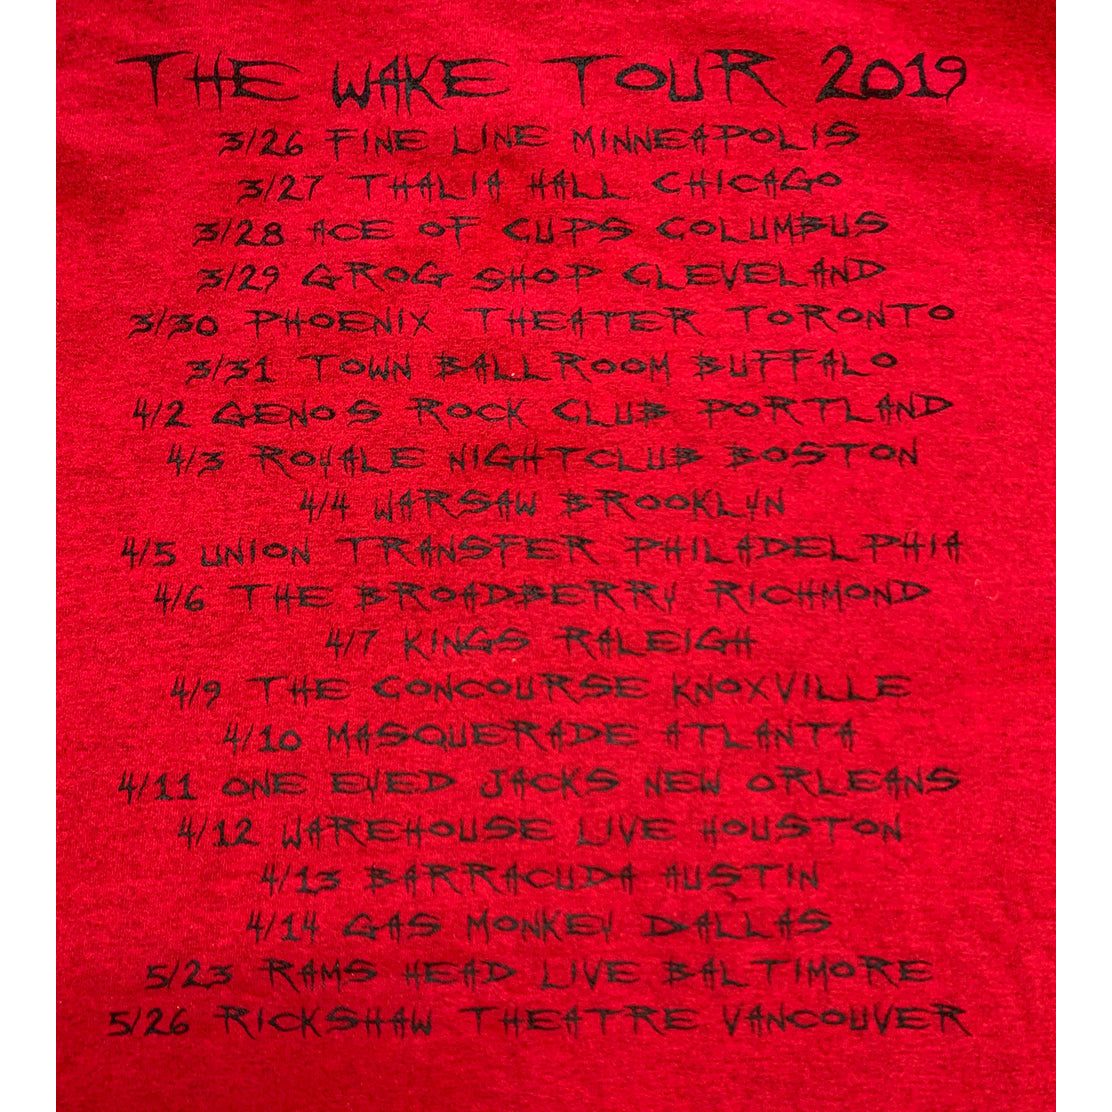 THE WAKE TOUR 2019
3/26 FINE LINE MINNEAPOLIS
3/27 THALIA HALL CHICAGO
3/28 ACE OF CUPS COLUMBUS
3/29 GROG SHOP CLEVELAND
3/30 PHOENIX THEATER TORONTO
3/31 TOWN BALLROOM BUFFALO
4/2 GENOS ROCK CLUB PORTLAND
4/3 ROYALE NIGHTCLUB BOSTON
4/4 WARSAW BROOKLYN
4/5 UNION TRANSFER PHILADELPHIA
4/6 THE BROADBERRY RICHMOND
4/7 KINGS RALEIGH
4/9 THE CONCOURSE KNOXVILLE
4/10 MASQUERADE ATLANTA
4/11 ONE EYED JACKS NEW ORLEANS
4/12 WAREHOUSE LIVE HOUSTON
4/13 BARRACUDA AUSTIN
4/14 GAS MONKEY DALLAS
5/23 RAMS HEAD LIVE BALTIMORE
5/26 RICKSHAW THEATRE VANCOUVER